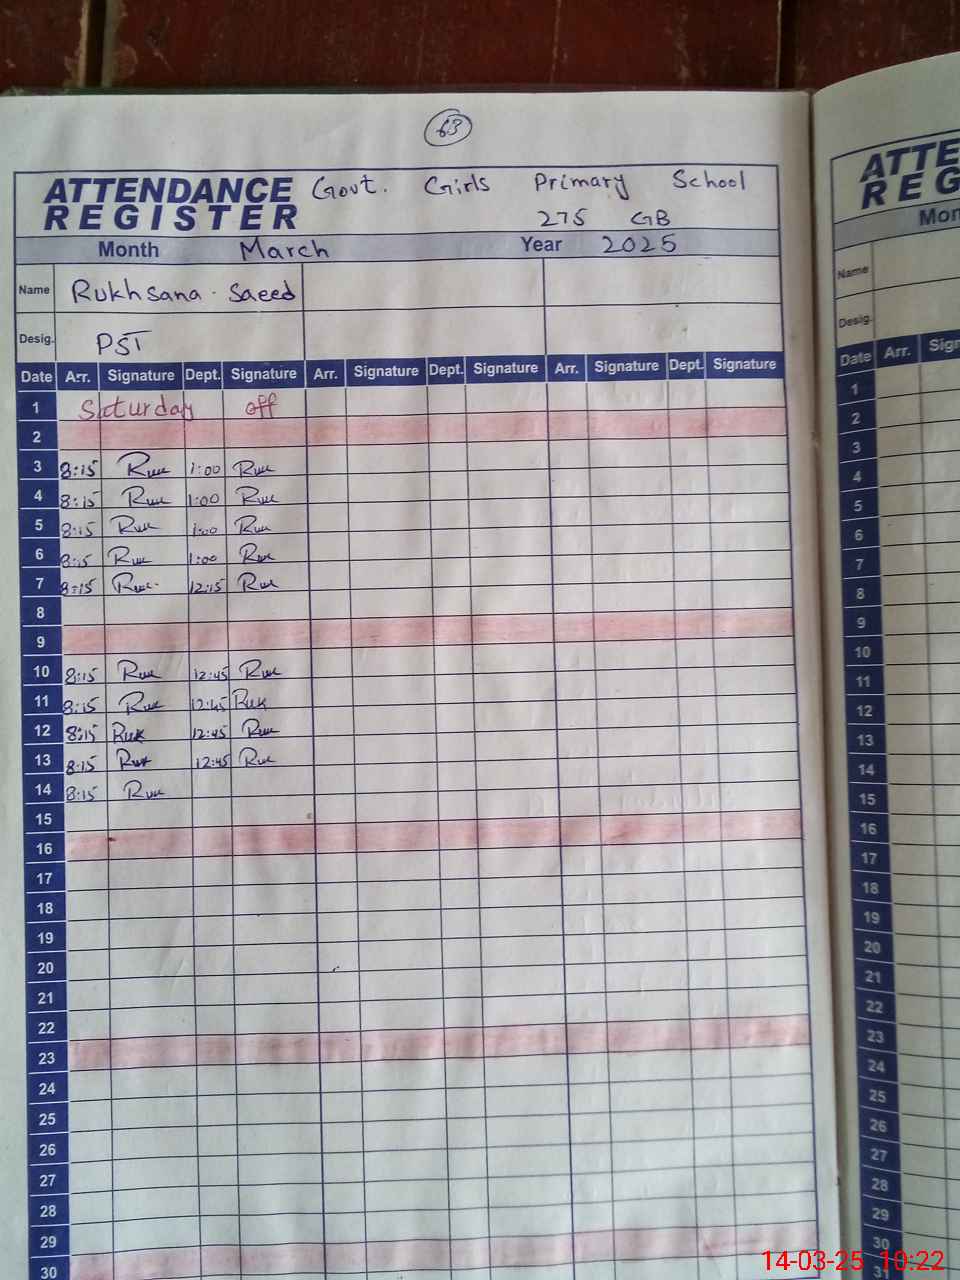 63
ATTENDANCE Govt. Girls Primary School
REGISTER 275 GB
Month March Year 2025
Name Rukhsana Saeed
Desig. PST
Date Arr. Signature Dept. Signature Arr. Signature Dept. Signature Arr. Signature Dept. Signature
1 Saturday off
2
3 8:15 1:00
4 8:15 1:00
5 8:15 1:00
6 8:15 1:00
7 8:15 12:15
8
9
10 8:15 12:45
11 8:15 12:45 Ruk
12 8:15 Ruk 12:45
13 8:15 12:45
14 8:15
15
16
17
18
19
20
21
22
23
24
25
26
27
28
29
30
ATTE
REG
Mon
Name
Desig.
Date Arr. Sign
1
2
3
4
5
6
7
8
9
10
11
12
13
14
15
16
17
18
19
20
21
22
23
24
25
26
27
28
29
30
14-03-25 10:22